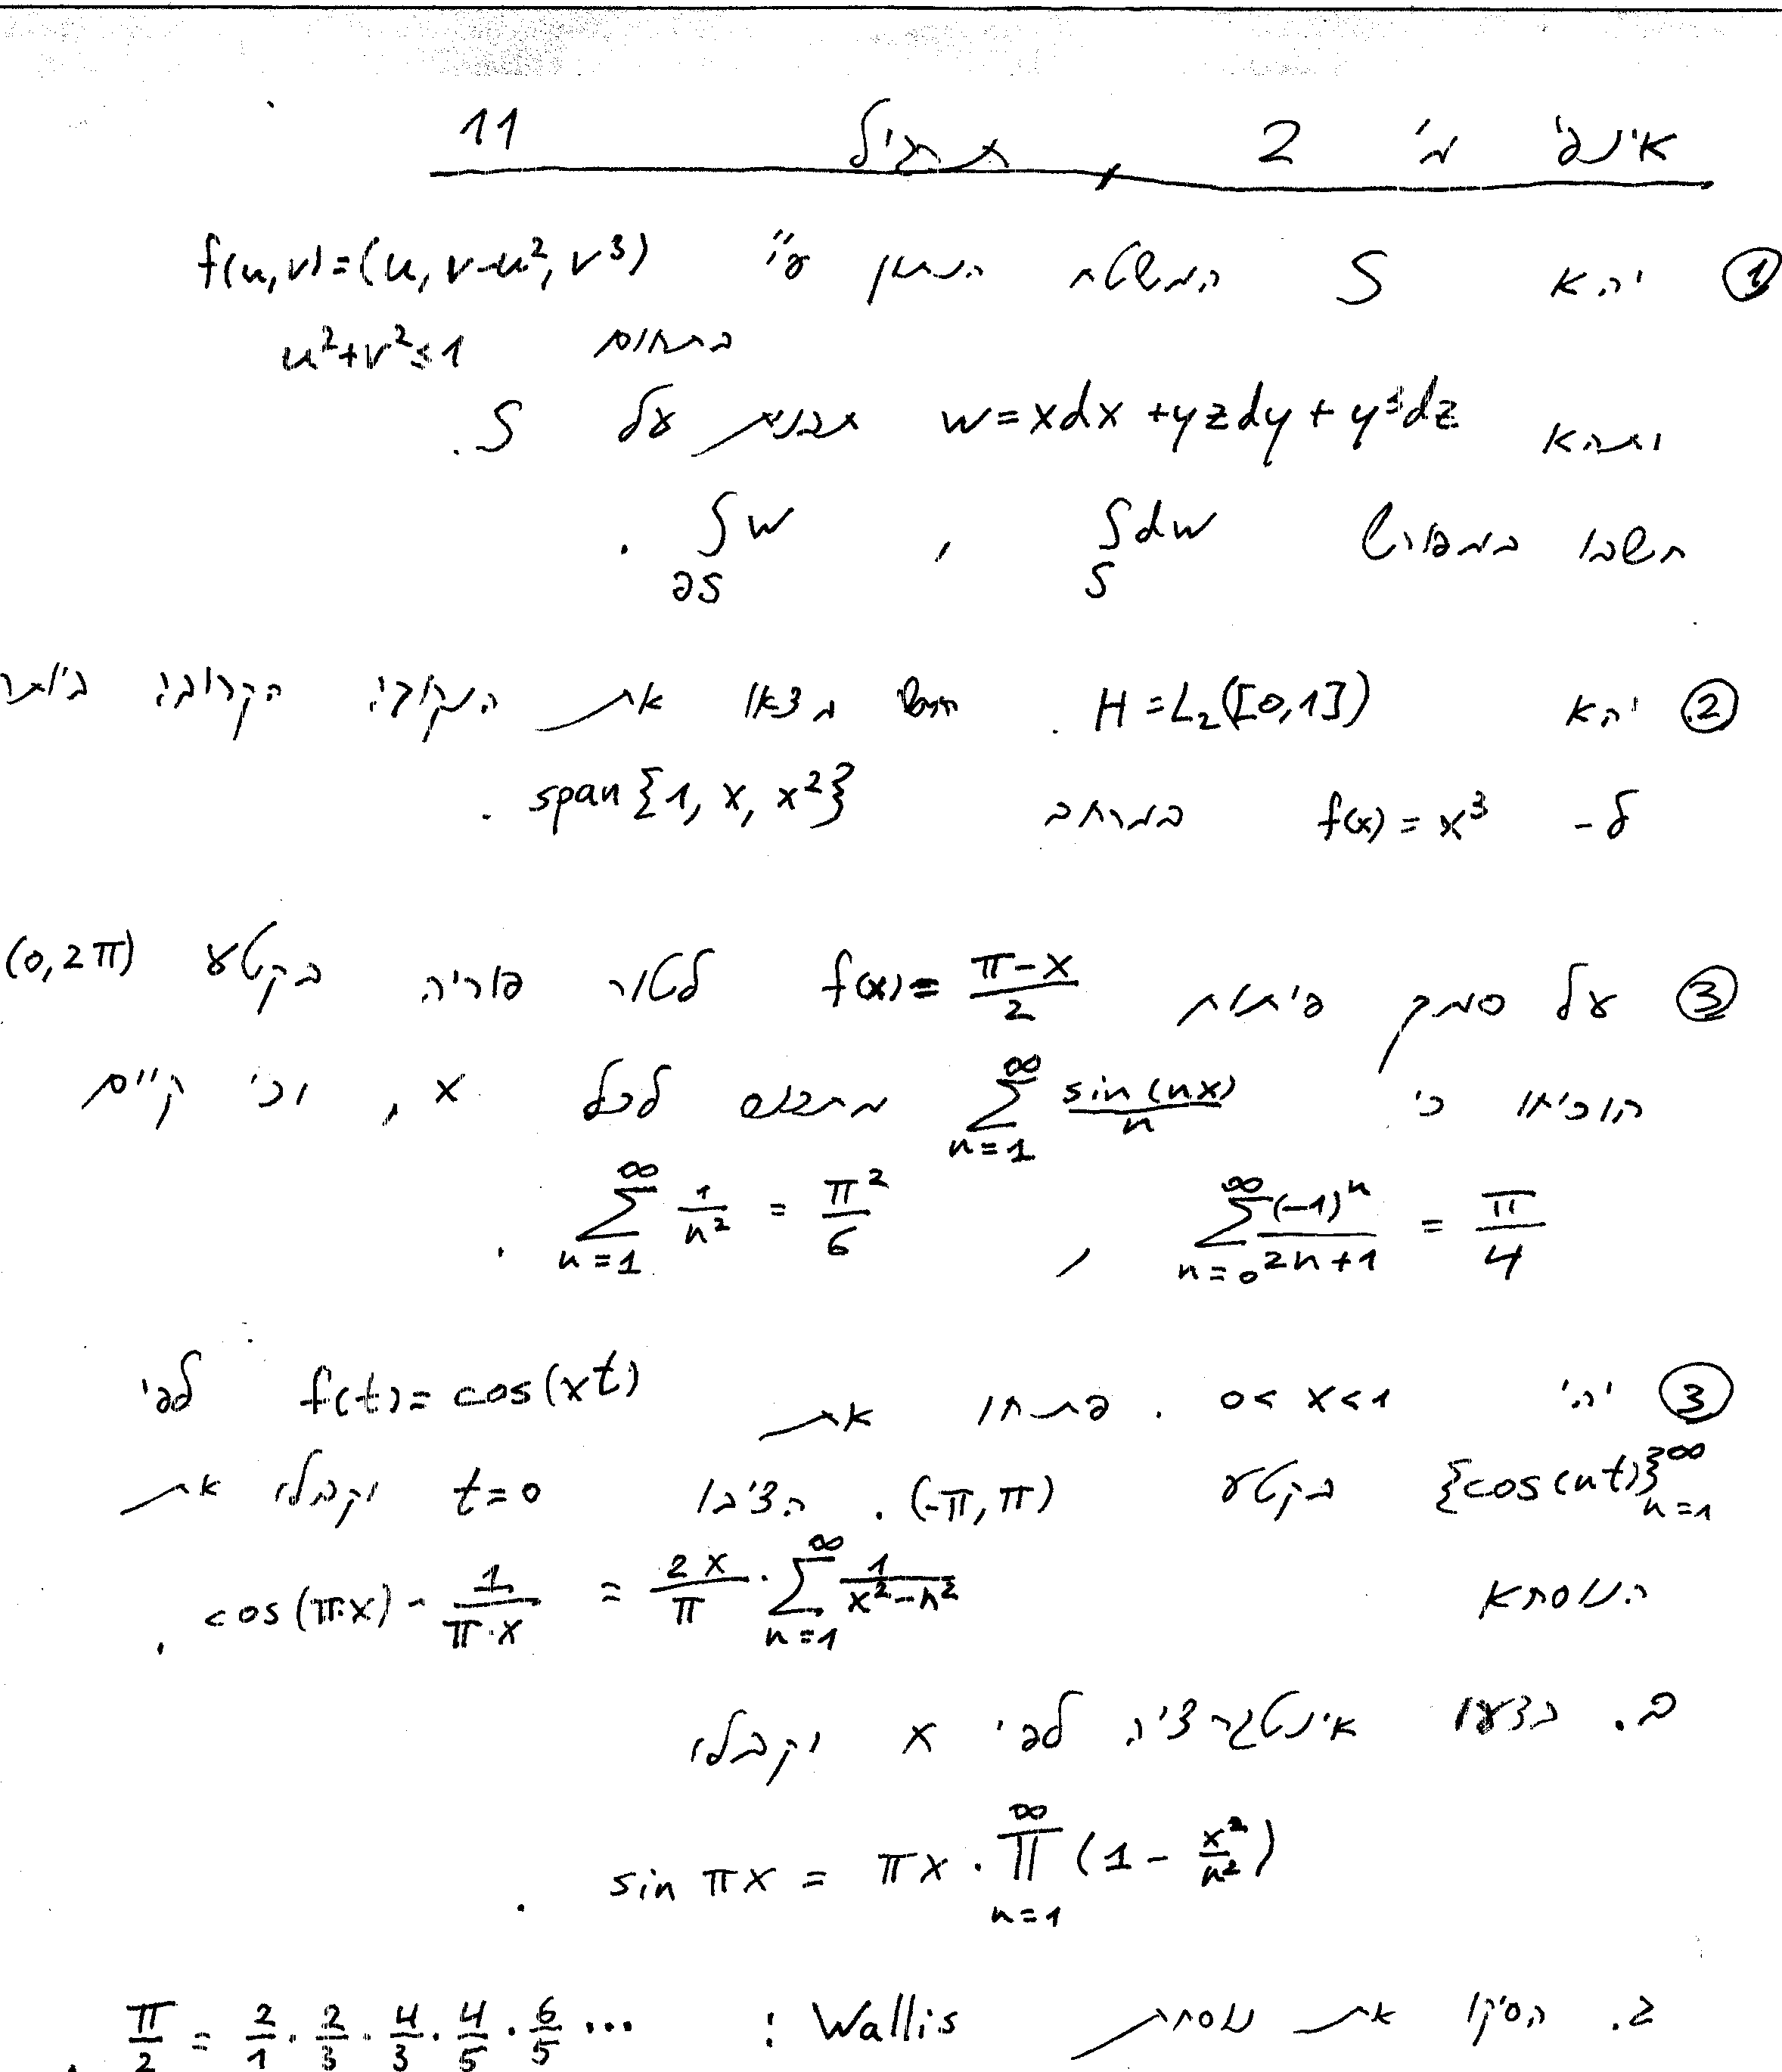 אינפי מ' 2, תרגיל 11
① יהא S המשטח הנתון ע"י f(u,v)=(u, v-u², v³)
בתחום u²+v²≤1
ותהא w=xdx+yzdy+y³dz תבנית על S.
חשבו במפורש ∫_S dw , ∫_∂S w .
② יהא H=L₂([0,1]). מצאו את הנקודה הקרובה ביותר
ל- f(x)=x³ במרחב span{1, x, x²} .
③ על סמך פיתוח f(x)=(π-x)/2 לטור פוריה בקטע (0,2π)
הוכיחו כי ∑_{n=1}^∞ sin(nx)/n מתכנס לכל x, וכי קיים
∑_{n=0}^∞ (-1)ⁿ/(2n+1) = π/4 , ∑_{n=1}^∞ 1/n² = π²/6 .
③ יהי 0<x<1 . פתחו את f(t)=cos(xt) לפי
{cos(nt)}_{n=1}^∞ בקטע (-π,π). הציבו t=0 וקבלו את
הנוסחא cos(π·x) - 1/(π·x) = 2x/π · ∑_{n=1}^∞ 1/(x²-n²) .
ב. בצעו אינטגרציה לפי x וקבלו
sin πx = πx · ∏_{n=1}^∞ (1 - x²/n²) .
ג. הסיקו את נוסחת Wallis : π/2 = 2/1 · 2/3 · 4/3 · 4/5 · 6/5 ... .